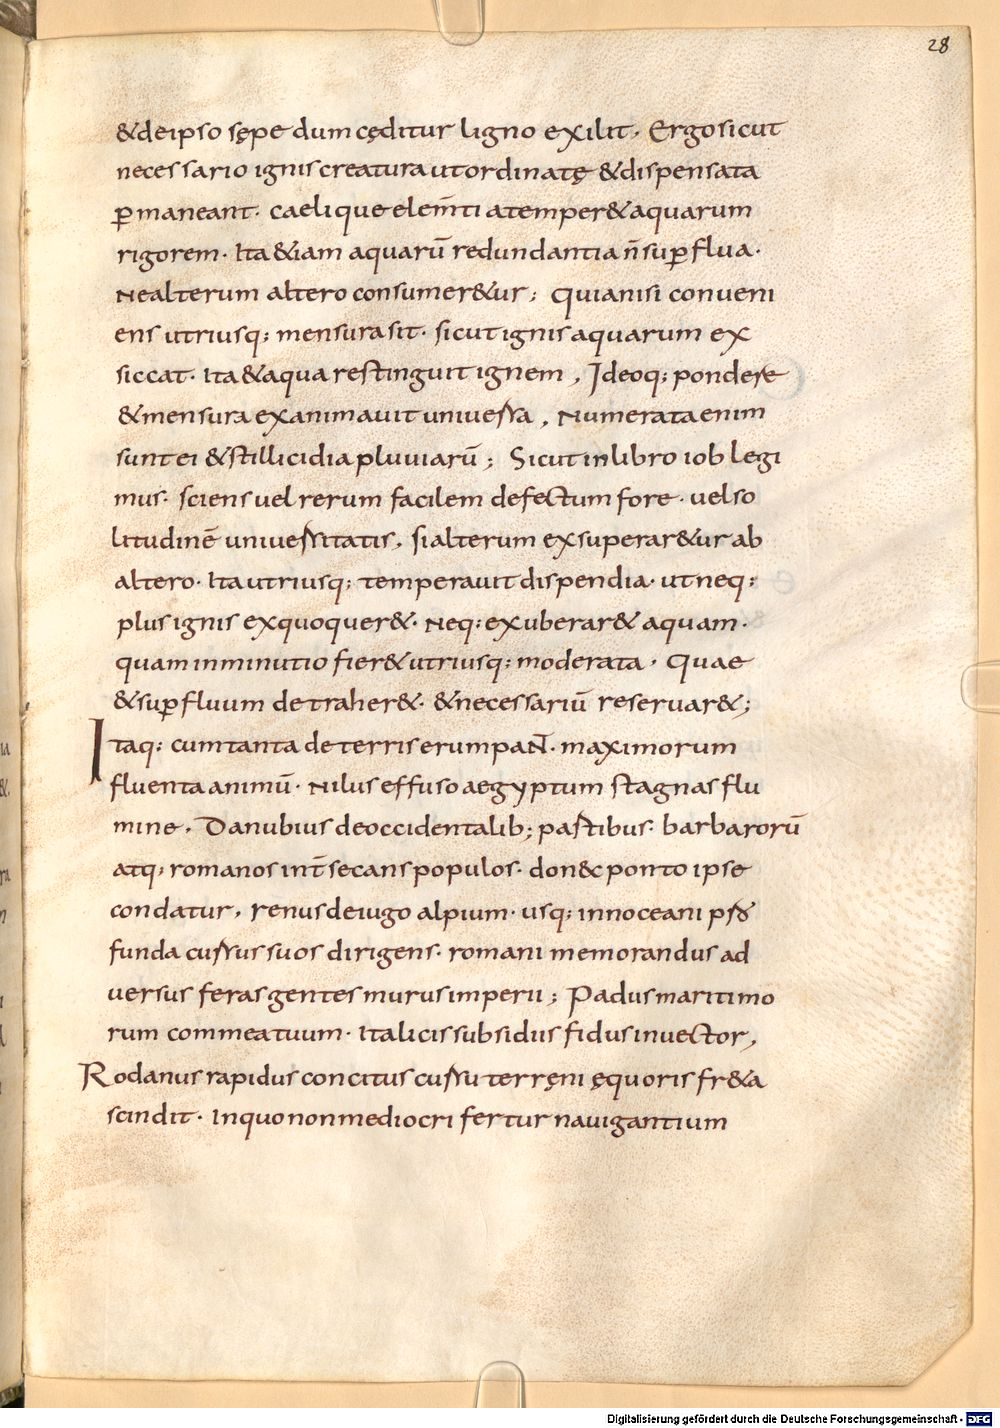 28
&deipso sępe dum cęditur ligno exilit, Ergo sicut
necessario ignis creatura ut ordinatę &dispensata
ꝑmaneant· caelique elem̄ti a temper& aquarum
rigorem· Ita &iam aquarū redundantia n̄ suꝑflua·
Ne alterum altero consumer&ur; Quia nisi conueni
ens utriusq; mensura sit· sicut ignis aquarum ex
siccat· Ita & aqua restinguit ignem, Ideoq; pondere
&mensura exanimauit uniuersa, Numerata enim
sunt ei & stillicidia pluuiarū; Sicut in libro iob legi
mus· sciens uel rerum facilem defectum fore· uel so
litudinē uniuersitatis, si alterum exsuperar&ur ab
altero· Ita utriusq; temperauit dispendia· ut neq;
plus ignis exquoquer&· Neq; exuberar& aquam·
quam inminutio fier& utriusq; moderata, Quae
&suꝑfluum detraher&· &necessariū reseruar&;
Itaq; cum tanta de terris erumpaNT· maximorum
fluenta animū· Nilus effuso aegyptum stagnas flu
mine, Danubius de occidentalib; partibus· barbarorū
atq; romanos int̄secans populos· donec ponto ipse
condatur, renus de iugo alpium· usq; in oceani pro
funda cursus suos dirigens· romani memorandus ad
uersus feras gentes murus imperii; Padus maritimo
rum commeatuum· Italicis subsidiis fidus inuector,
Rodanus rapidus concitus cursu terręni ęquoris fr&a
scindit· In quo non mediocri fertur nauigantium
Digitalisierung gefördert durch die Deutsche Forschungsgemeinschaft - DFG